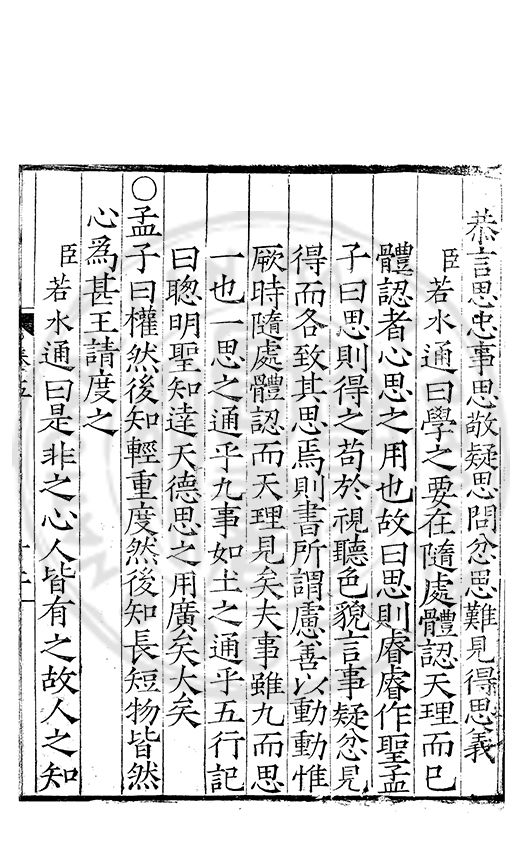 恭言思忠事思敬疑思問忿思難見得思義
臣若水通曰學之要在隨處體認天理而已
體認者心思之用也故曰思則睿睿作聖孟
子曰思則得之苟於視聽色貌言事疑忿見
得而各致其思焉則書所謂慮善以動動惟
厥時隨處體認而天理見矣夫事雖九而思
一也一思之通乎九事如土之通乎五行記
曰聰明聖知達天德思之用廣矣大矣
○孟子曰權然後知輕重度然後知長短物皆然
心爲甚王請度之
臣若水通曰是非之心人皆有之故人之知